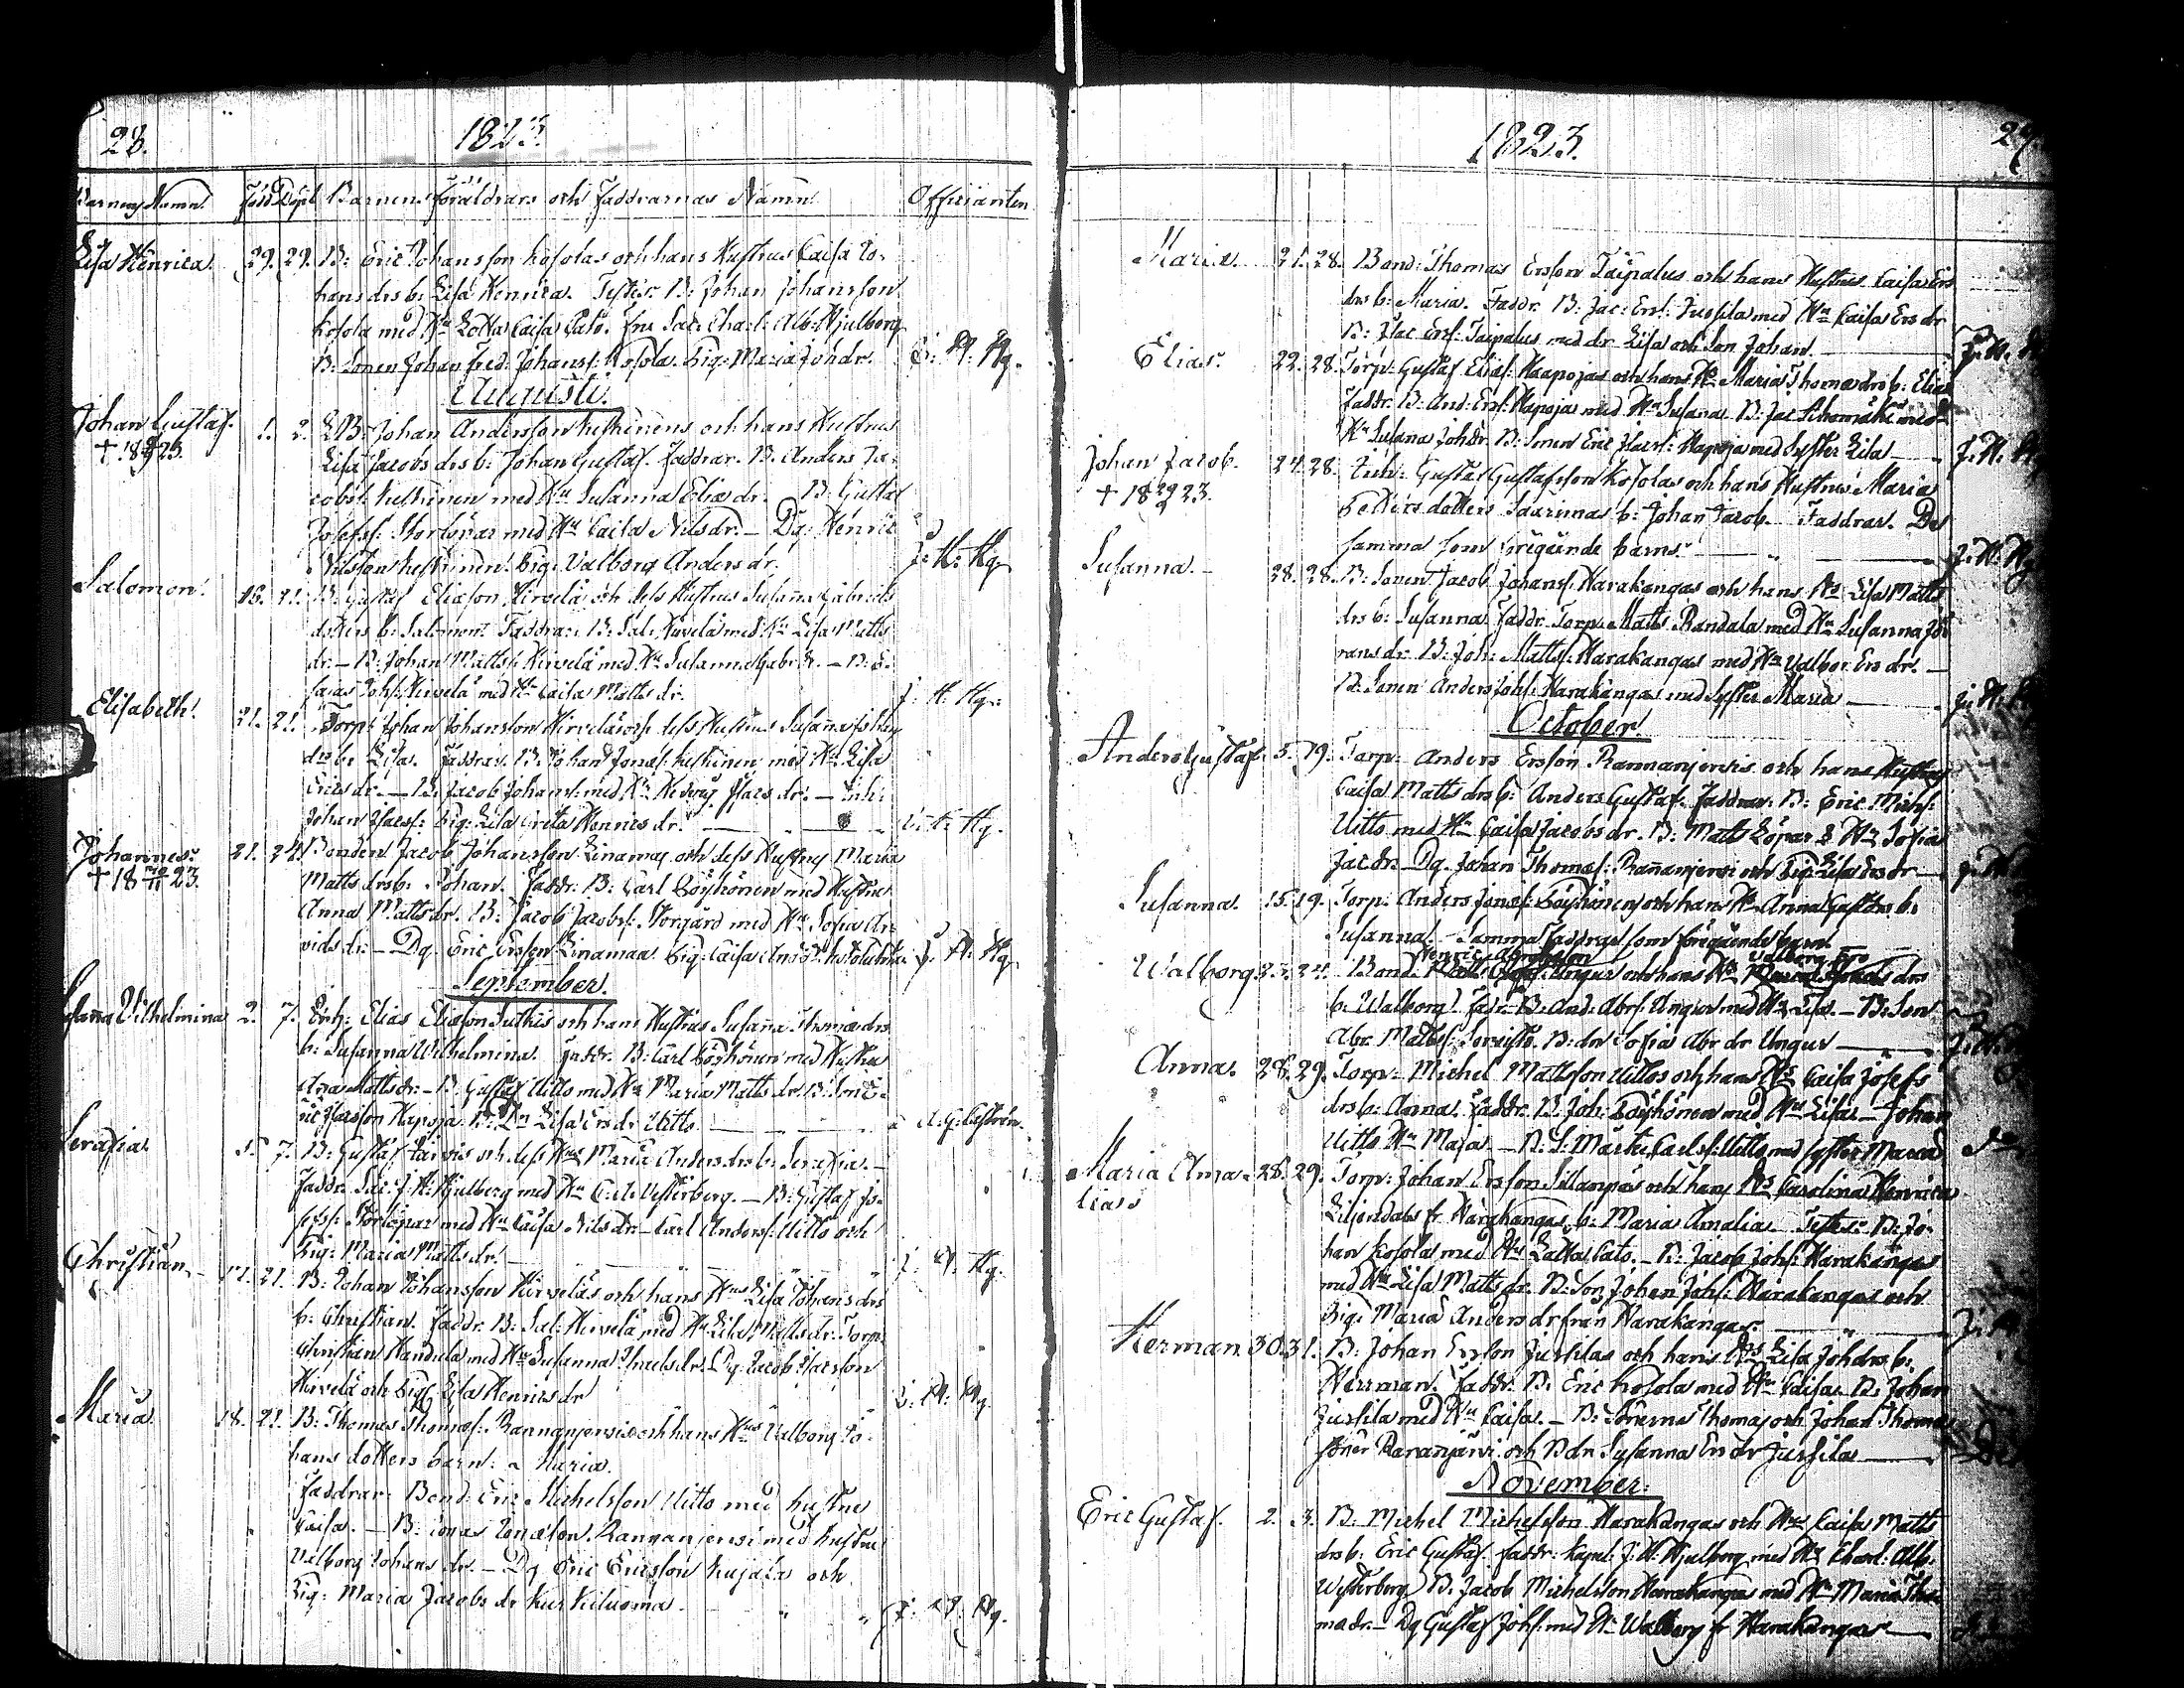 28.
1823.
Barnens Namn. Född Döpt Barnens Föräldrars och Faddrarnas Namn Officianten
Lisa Henrica. 29. 29. B: Eric Johansson Kosolas och hans Hustrus Caisa Jo-
hans drs b: Lisa Henrica. Testes: B: Johan Johansson
Kosola med Hu Lotta Caisa Cato. Fru Sac: Charl: Alb: Hjulberg
B: Sonen Johan Fred: Johans: Kosola. Pig: Maria Joh dr. J: H: Hg.
Augusti.
Johan Gustaf. 1. 2. B: Johan Andersson Keskinens och hans Hustrus
† 18 23. Lisa Jacobs drs b: Johan Gustaf. Faddrar. B. Anders Ja-
cobss: Keskinen med Hu Susanna Eliædr. B: Gustaf
Josefss: Storlöpar med Hu Caisa Nils dr. – Dg: Henric
Nilsson Keskinen. Pig: Valborg Anders dr. J: H: Hg.
Salomon. 16. 21. B: Gustaf Eliæson Hirvelä och dess Hustrus Susanna Gabriels
dotters b: Salomon. Faddrar: B: Sal: Hirvelä med Hu Lisa Matts
dr. – B: Johan Mattss: Hirvelä med Hu Susanna Gabr. dr. – B: E-
saias Johs: Hirvelä med Hu Caisa Matts dr. J: H: Hg.
Elisabeth. 21. 21. Torp: Johan Johansson Hirvelä och dess Hustrus Susanna Johan
drs b: Lisa. Faddrar. B: Johan Jonæs: Keskinen med Hu Lisa
Erics dr. – B: Jacob Johans: med Hu Hedvig Isacs dr. – Enh:
Johan Isacs: Pig: Lisa Greta Henrics dr. J: H: Hg.
Johannes. 21. 24. Bonden Jacob Johansson Linamas och dess Hustrus Maria
† 18 23. Matts drs b: Johan. Faddr: B: Carl Böyhönen med Hustru
Anna Matts dr. B: Jacob Jacobs: Norgård med Hu Sofia Ar-
vids dr. – Dg. Eric Ersson Linamaa Pig: Caisa And dr J: H: Hg.
September.
Sanna Vilhelmina 2. 7. Enh: Elias Eliæson Luthis och hans Hustrus Susanna Thomædrs
b: Susanna Wilhelmina. Faddr: B: Carl Böyhönen med Hustru
Anna Matts dr. – B: Gustaf Uitto med Hu Maria Matts dr. B: Son E-
ric Isacsson Hapoja B: Dr Lisa Ers dr Uitto A. G. Castrén.
Serafia. 5. 7. B: Gustaf Järvis och dess Hus Maria Anders drs b: Serafia. –
Faddr. Sac: J: H: Hjulberg med Hu C: A: Vesterberg. – B: Gustaf Jo-
sefss: Storlöpar med Hu Caisa Nils dr – Carl Anders: Uitto och
Pig: Maria Matts dr. J: H: Hg.
Christian. 17. 21. B: Johan Johansson Hirveläs och hans Hus Lisa Johans drs
b: Christian. Faddr. B: Sal: Hirvelä med Hu Lisa Matts dr. Torp:
Christian Handula med Hu Susanna Thaels dr. Dg: Jacob Isacsson
Hirvelä och Pig: Lisa Henrics dr J: H: Hg.
Maria. 18. 21. B: Thomas Thomæs: Rannanjervis och hans Hus Valborg Jo-
hans dotters barn: Maria.
Faddrar: Bond: Eric Michelsson Uitto med hustru
Caisa. – B: Jonas Jonæson Rannanjervi med hustru
Valborg Johans dr. – Dg Eric Ericsson Kujala och
Pig: Maria Jacobs dr Kurkiluoma. J: H: Hg.
1823.
Maria. 21. 28. Bond: Thomas Ersson Taipalus och hans Hustrus Caisa Ers
drs b: Maria. Faddr. B: Jac: Ers: Jussila med Hu Caisa Ers dr
B: Isac Ers: Taipalus med dr Lisa och Son Johan. J: H:
Elias. 22. 28. Torp: Gustaf Elias: Haapojas och hans Hs Maria Thomædrs b: Elias
Faddr. B: And: Ers: Hapoja med Hu Susana. B: Jac med
Hu Susana Joh dr. B: Sonen Eric Isacs: Hapoja med Syster Lisa J: H: Hg
Johan Jacob. 24. 28. Enh: Gustaf Gustafsson Kosolas och hans Hustrus Maria
† 18 23. Petters dotters Saarinas b: Johan Jacob. Faddrar. De
samma som föregående barns. J: H: Hg
Susanna. 28. 28. B: Sonen Jacob Johans: Harakangas och hans Hs Lisa Matts
drs b: Susanna Faddr. Torp: Matts Randala med Hu Susanna Jö-
rans dr. B: Joh: Mattss: Harakangas med Hu Valbor: Ers dr. –
B: Sonen Anders Johs: Harakangas med Syster Maria J: H:
October.
Anders Gustaf. 5. 19. Torp: Anders Ersson Rannanjervis och hans Hustrus
Caisa Matts drs b: Anders Gustaf. Faddrar: B: Eric Mich:
Uitto med Hu Caisa Jacobs dr. B: Matts Löpar & Hu Sofia
Jac dr. – Dg. Johan Thomæs: Rannanjervi och Pig: Lisa Ers dr J: H
Susanna. 15. 19. Torp: Anders Jonæs: Böyhönens och hans Hs Anna Gustdrs b:
Susanna. – Samma Faddrar som föregående barn.
Henric Abrahamson Valborg
Walborg 23. 24. Bond: Ungur och hans Hs drs
b: Walborg. Fadr: B: And: Abrs: Ungur med Hu Lisa. – B: Son
Abr: Mattss: B: dr Sofia Abr. dr Ungur J: H.
Anna. 28. 29. Torp: Michel Mattsson Uittos och hans Hs Caisa Josefs
drs b: Anna. Faddr: B: Joh: Böyhönen med Hu Lisa – Johan
Uitto Hu Maja. – B: S: Märta Carls: Uitto med syster Maria
Maria Ama- 28. 29. Torp: Johan Ersson Sillanpääs och hans Hs Carolina Henrica
lia. Liljendals fr Harakangas b: Maria Amalia. Testes: B: Jo-
han Kosola med Hu Lotta Cato. – B: Jacob Johs: Harakangas
med Hu Lisa Matts dr. B: Son Johan Johs: Harakangas och
Pig: Maria Anders dr från Harakangas. J: H
Herman 30. 31. B: Johan Ersson Jussilas och hans Hs Lisa Johdrs b:
Herrman. Faddr. B: Eric Kosola med Hu Caisa. B: Johan
Jussila med Hu Caisa. – B: Sönerne Thomas och Johan Thomæ
söner Rananjärvi och B: dr Susanna Ers dr Jussila
November.
Eric Gustaf. 2. 3. B: Michel Michelsson Harakangas och Hus Caisa Matts
drs b: Eric Gustaf. Faddr: Kapel: J: H: Hjulberg med Hu Charl: Alb:
Westerberg. B: Jacob Michelsson Harakangas med Hu Maria Tho-
mædr. – Dg Gustaf Johs: med Hu Walborg fr Harakangas